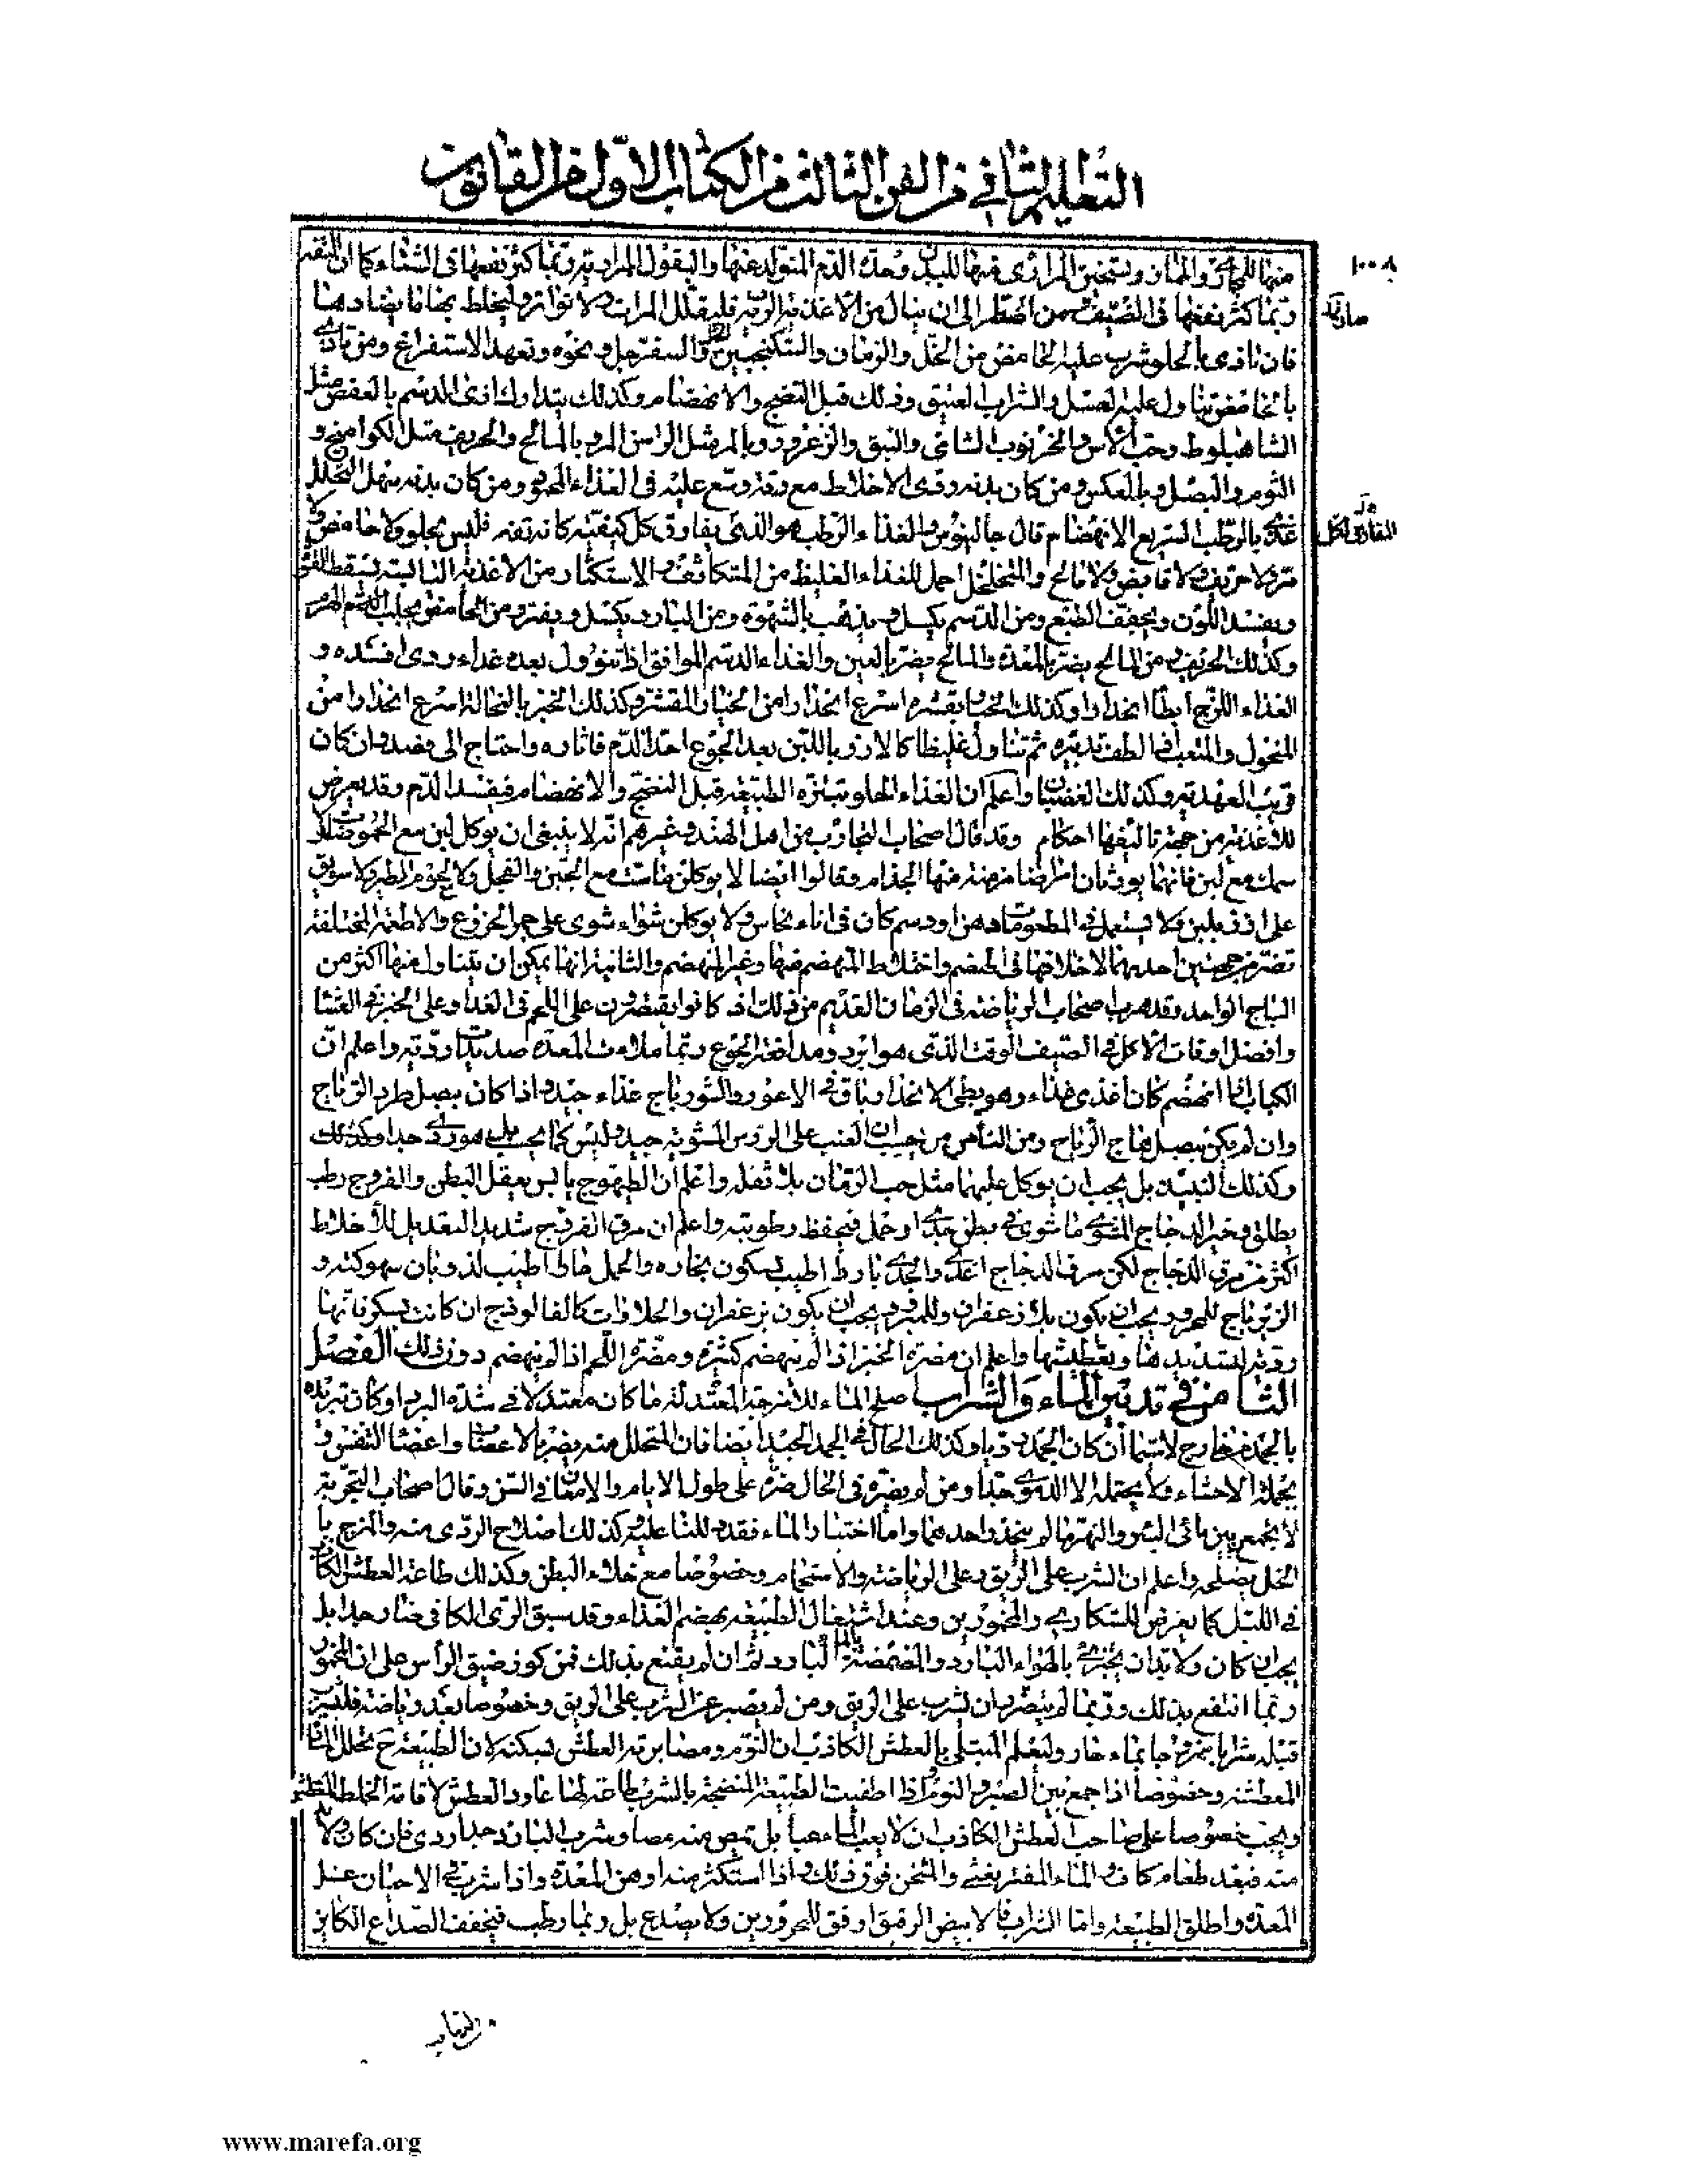 التعليم الثاني من الفن الثالث من الكتاب الاوّل من القانون
والمان وتسخين المرارى منها للبدن وحدة الدم المتولد عنها والبقول المرارية ربّما كثر نفعها فى الشتاء كما ان التفه
ربّما كثر نفعها فى الصّيف ومن اضطر الى ان ينال من الاغذية الرديه فليقلّل المرات ولا تواتر وليخلط بها ما يضادها
فان تاذى بالحلو شرب عليه الحامض من الخلّ والرمان والسّكنجبين والسفرجل ونحوه وتعهد الاستفراغ ومن تاذى
بالحامض تناول عليه العسل والشراب العتيق وذلك قبل النضج والانهضام وكذلك يتدارك اذى الدسم بالعفص مثل
الشاهبلوط وحبّ الاس والخرنوب الشامى والنبق والزعرور وبالمر مثل الراسن المر وبالمالح والحريف مثل الكوامخ و
الثوم والبصل وبالعكس ومن كان بدنه ردى الاخلاط مع رقة وسّع عليه فى الغذاء المحمود ومن كان بدنه سهل التحلل
غذى بالرّطب السّريع الانهضام قال جالينوس والغذاء الرّطب هو الذى يفارق كل كيفيّة كانه تفه فليس بحلو ولا حامض ولا
مرّ ولا حريف ولا قابض ولا مالح والمتخلخل احمل للغذاء الغليظ من المتكاثف والاستكثار من الاغذية اليابسة يسقط القوة
ويفسد اللّون ويجفف الطبع ومن الدسم يكسل ويذهب بالشهوة ومن البارد يكسل ويفتر ومن الحامض يجلب الهرم
وكذلك الحريف ومن المالح يضرّ بالمعدة والمالح يضر بالعين والغذاء الدسم الموافق اذا تنوول بعده غذاء ردى افسده و
الغذاء اللزج ابطأ انحدارا وكذلك الخيار بقشره اسرع انحدارا من الخيار المقشر وكذلك الخبز بالنخالة اسرع انحدارا من
المنخول والمتعب اذا لطف تدبيره ثم تناول غليظا كالارز باللّبن بعد الجوع احتدّ الدّم فاثاره واحتاج الى فصد وان كان
قريب العهد به وكذلك الغضبان واعلم ان الغذاء الحلو تبتزه الطبيعة قبل النضج والانهضام فيفسد الدّم وقد يعرض
للاغذية من جهة تاليفها احكام وقد قال اصحاب التجارب من اهل الهند وغيرهم انّه لا ينبغى ان يوكل لبن مع الحموضات ولا
سمك مع لبن فانهما يورثان امراضا مزمنة منها الجذام وقالوا ايضا لا يوكلن ماست مع الجبن والفجل ولا لحوم الطير ولا سويق
على ارز بلبن ولا يستعمل فى المطعومات دهن او دسم كان فى اناء نحاس ولا يوكلن شواء شوى على جمر الخروع والاطعمة المختلفة
تضرّ من جهتين احديهما لاختلافها فى الهضم واختلاط المنهضم منها وغير المنهضم والثانية انها يمكن ان يتناول منها اكثر من
الباج الواحد وقد هرب اصحاب الرياضة فى الزمان القديم من ذلك اذ كانوا يقتصرون على اللحم فى الغداء وعلى الخبز فى العشا
وافضل اوقات الاكل فى الصيف الوقت الذى هو ابرد ومدافعة الجوع ربّما ملات المعدة صديدا رديّة واعلم انّ
الكباب اذا انهضم كان اغذى غذاء وهو بطى الانحدار باق فى الاعور والشورباج غذاء جيّد واذا كان ببصل طرد الرياج
وان لم يكن ببصل هاج الرياح ومن الناس من يحسب ان العنب على الرؤس المشوية جيد وليس كما يحسب بل هو ردى جدا وكذلك
وكذلك النبيذ بل يجب ان يوكل عليهما مثل حب الرّمان بلا ثفله واعلم ان الطيهوج يابس يعقل البطن والفروج رطب
يطلق وخير الدجاج المشوى ما شوى فى بطن جدى او حمل فيحفظ رطوبته واعلم ان مرق الفروج شديد التعديل للأخلاط
اكثر من مرق الدجاج لكن مرق الدجاج اغذى والجدى باردا اطيب لسكون بخاره والحمل حارا اطيب لذوبان سهوكته و
الزيرباج للمحرور يجب ان يكون بلا زعفران وللمبرود يجب ان يكون بزعفران والحلاوات كالفالوذج ان كانت بسكر فانّها
رديّة لتسديدها وتعطيشها واعلم ان مضرة الخبز اذا لم ينهضم كثيرة ومضرّة اللّحم اذا لم ينهضم دون ذلك الفصل
الثامن فى تدبير الماء والشراب صلح الماء للامزجة المعتدلة ما كان معتدلا فى شدّة البرد او كان تبريده
بالجمد من خارج لاسيّما ان كان الجمد ردّيا وكذلك الحال فى الجمد الجيّد ايضا فان المتحلل منه يضر بالاعصاب واعضا التنفس و
بجملة الاحشاء ولا يحتمله الا الدموى جدّا ومن لم يضرّه فى الحال ضرّه على طول الايام والامعان فى السّن وقال اصحاب التجربة
لا يجمع بين مائى البئر والنهر ما لم ينحدر احدهما واما اختيار الماء فقد دللنا عليه وكذلك اصلاح الردّى منه والمزج با
الخل يصلحه واعلم ان الشرب على الريق وعلى الرياضة والاستحمام وخصوصا مع خلاء البطن وكذلك طاعة العطش الكاذب
فى الليل كما يعرض للسّكارى والمخمورين وعند اشتغال الطبيعة بهضم الغذاء وقد سبق الرّى الكافى ضار جدا بل
يجب ان كان ولا بدّ ان يجتزى بالهواء البارد والمضمضة بالماء البارد ثم ان لم يقنع بذلك فمن كوز ضيق الرأس على ان المخمور
ربّما انتفع بذلك وربّما لم يتضرر بان شرب على الريق ومن لم يصبر عن الشرب على الريق وخصوصا بعد رياضة فليشرب
قبله شرابا ممزوجا بماء حار وليعلم المبتلى بالعطش الكاذب ان النوم ومصابرته العطش يسكنه لان الطبيعة ح تحلل المادة
المعطشة وخصوصا اذا جمع بين الصبر والنوم واذا اطفيت الطبيعة المنضجة بالشرب طاعة لها عاود العطش لاقامة الخلط المعطش
ويجب خصوصا على صاحب العطش الكاذب ان لا يعب الماء عبا بل يمص منه مصا وشرب البارد جدا ردى فان كان ولا
بد منه فبعد طعام كاف والماء المفتر يغثى والسّخن فوق ذلك واذا استكثر منه اوهن المعدة واذا شرب فى الاحيان غسل
المعدة واطلق الطبيعة وامّا الشراب فالابيض الرقيق اوفق للمحرورين ولا يصدع بل ربما رطب فيخفف الصّداع الكاين
www.marefa.org